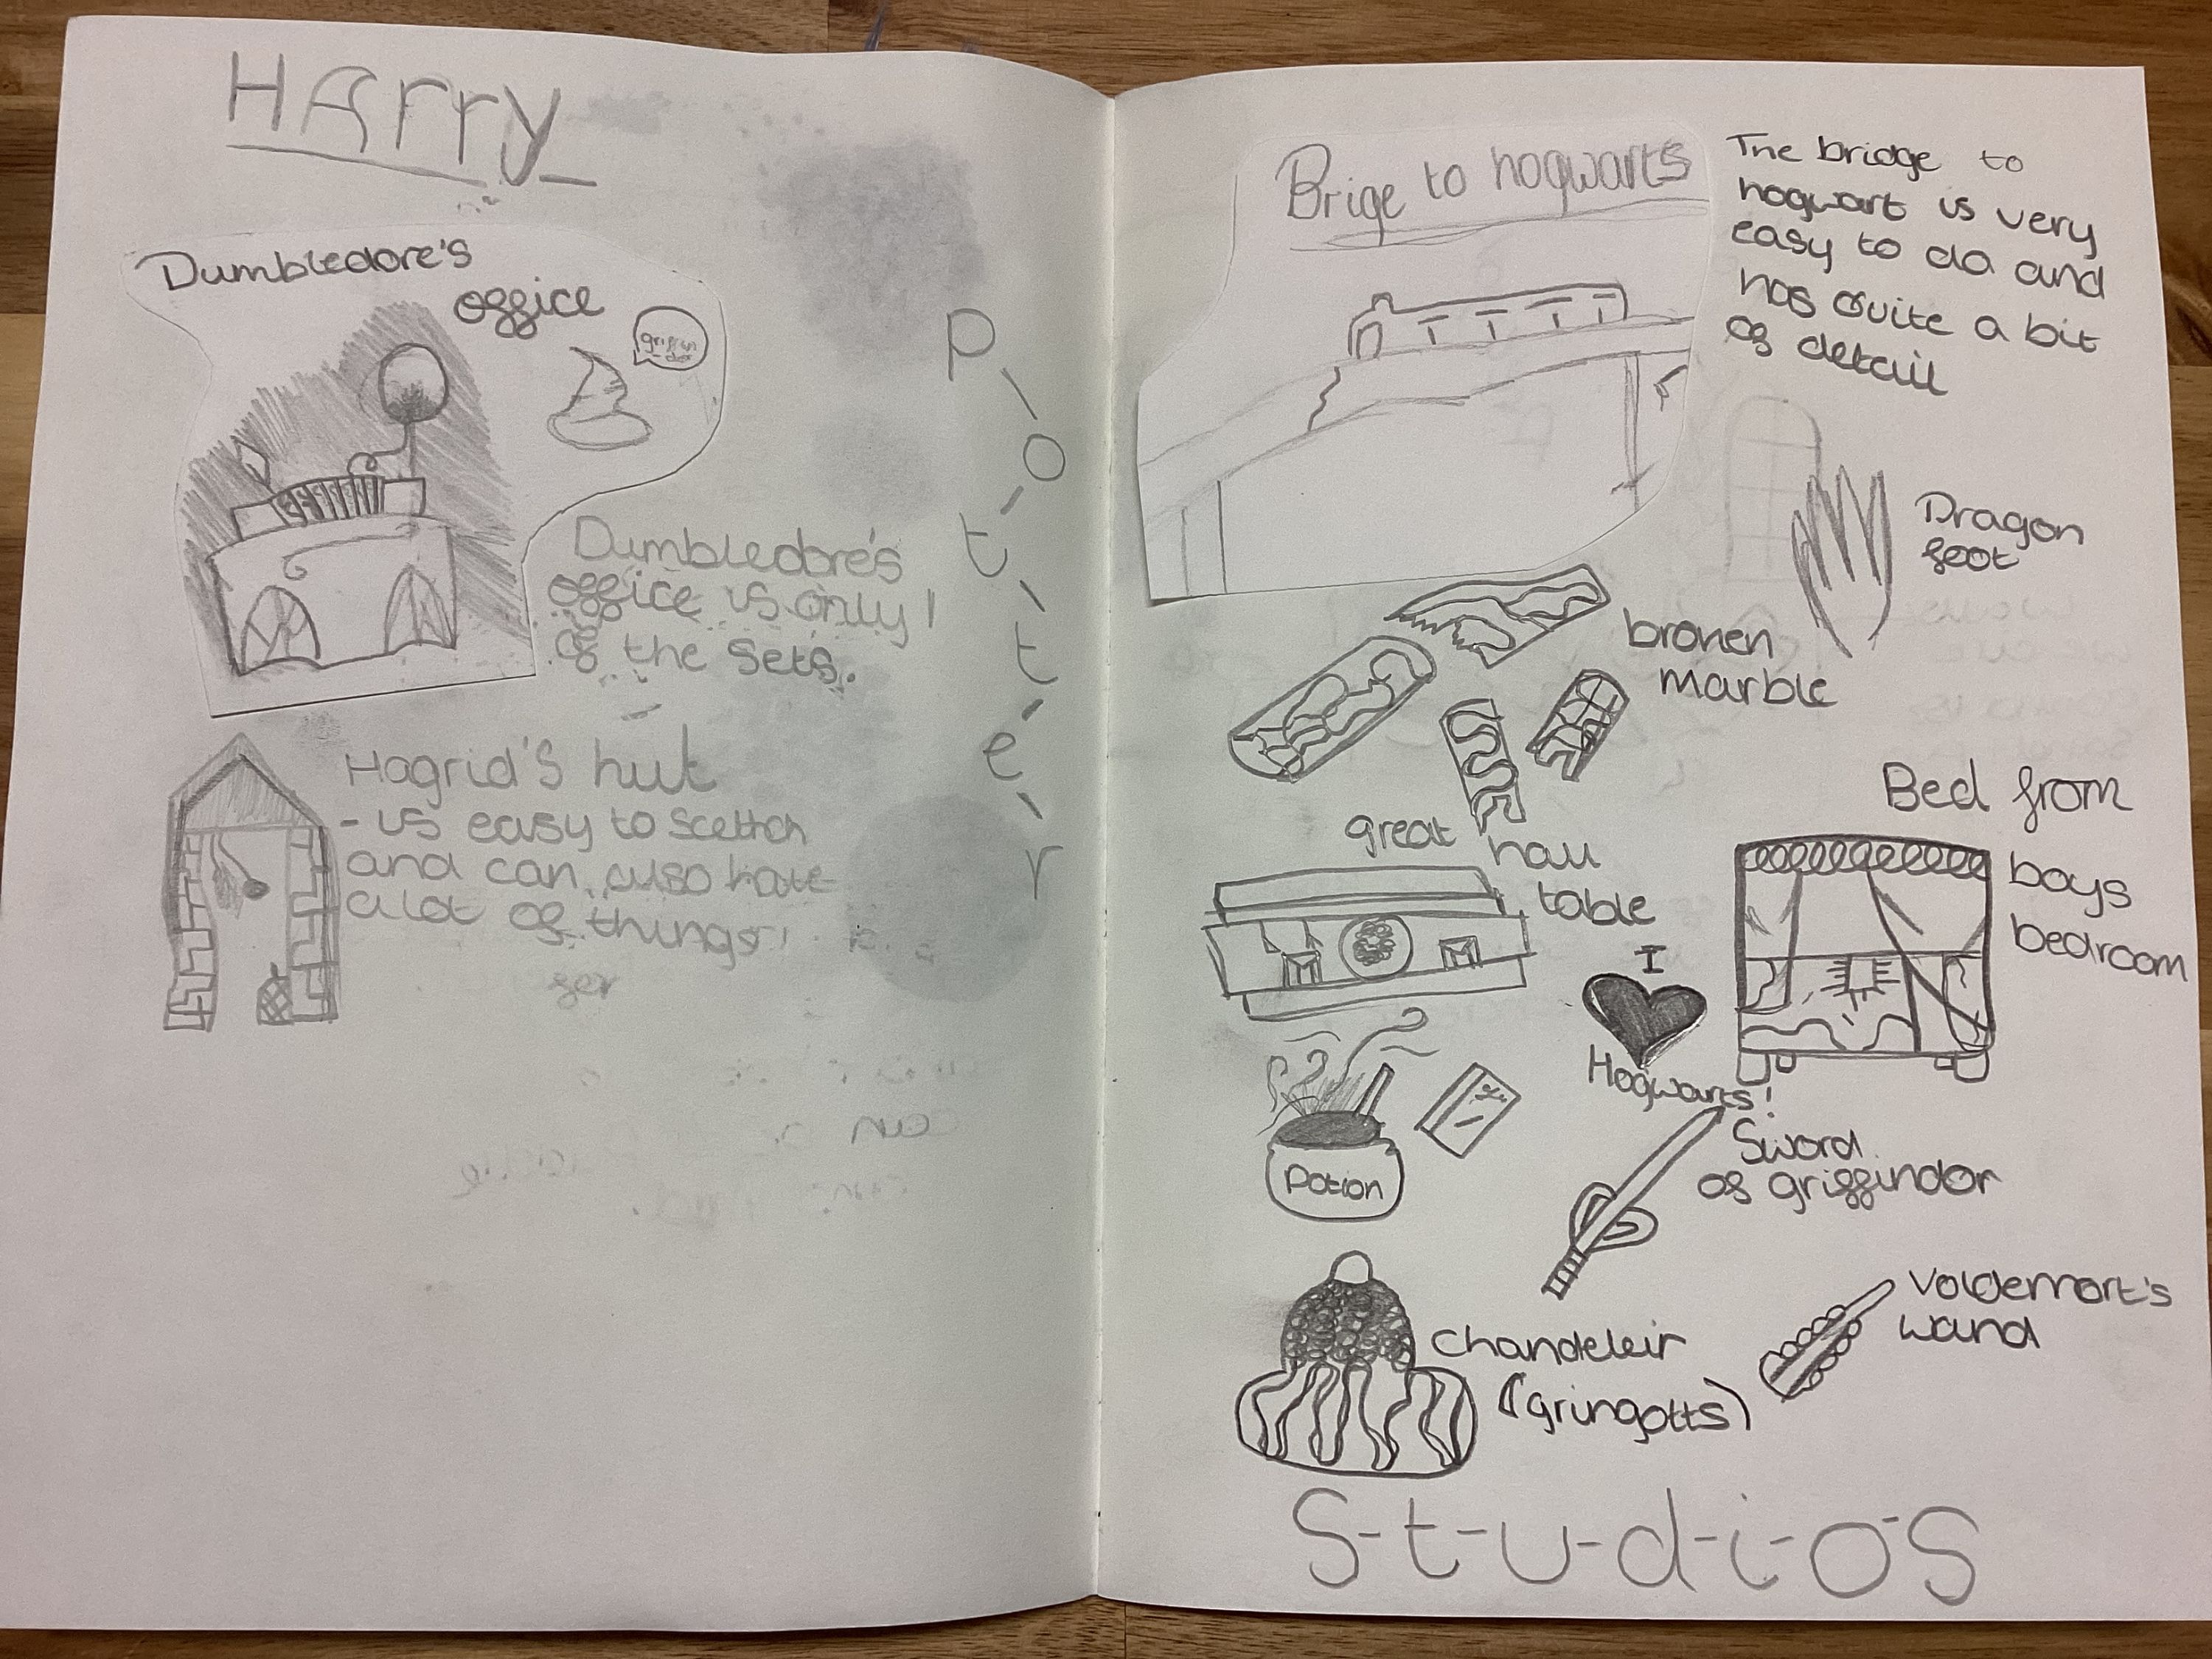 HArry
Dumbledore's
office
griffin
-dor
P-o-t-t-e-r
Dumbledore's
office is only 1
of the sets.
Hagrid's hut
- is easy to scettch
and can also have
a lot of things!
Brige to hogwarts
The bridge to
hogwart is very
easy to do and
has quite a bit
of detail
Dragon
foot
broken
marble
great hall
table
Bed from
boys
bedroom
I
Hogwarts!
Potion
Sword
of griffindor
Voldemort's
wand
Chandeleir
(gringotts)
S-t-u-d-i-o-s